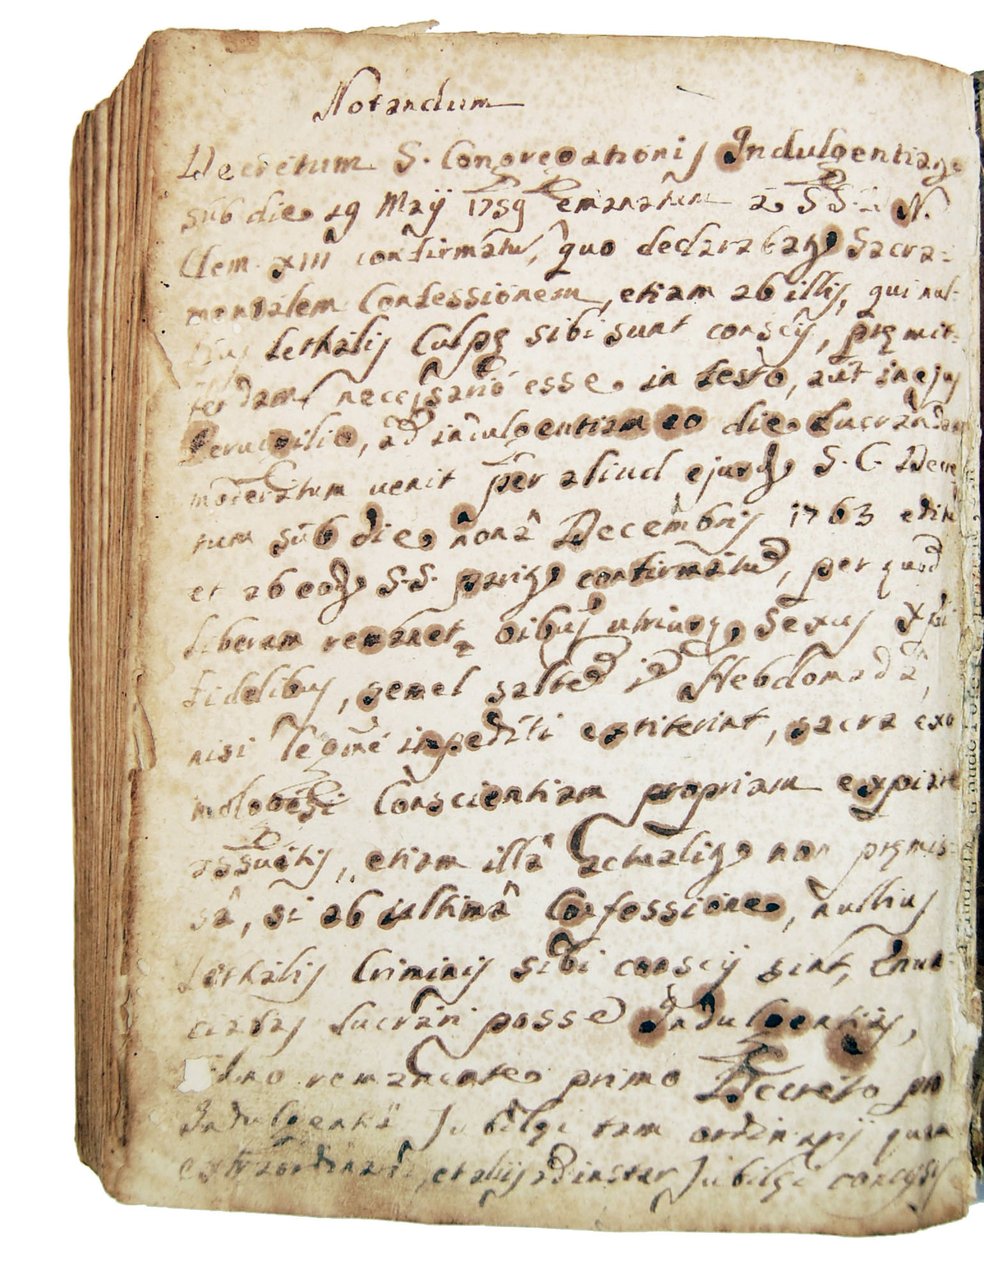 Notandum
Decretum S. Congregationis Indulgentiarg
sub die 19 Maij 1759 emanatum a SS. N.
Clem. XIII confirmatu, quo declarabatg Sacra-
mentalem Confessionem, etiam ab illis, qui nul-
lius Lethalis Culpę sibi sunt conscij, pręmit-
tendam necessario esse in festo, aut in ejus
Pervigilio, ad indulgentiam eo die Lucrandam
moderatum venit per aliud ejusdg S. C. Decre
tum sub die nonâ Decembris 1763 editu
et ab eodg S.S. parig confirmatu, per quod
Liberum remanet, oibus utriusq Sexus Xpi
Fidelibus, semel salte in Hebdomadâ,
nisi legme impediti extiterint, sacra exo
mologesi Conscientiam propriam expiare
assuetis, etiam illâ actualig non pręmis-
sâ, si ab ultimâ Confessione, nullius
Lethalis Criminis sibi conscij sint, Enun-
ciatas Lucrari posse Indulgentias,
remanente primo Decreto pro
Indulgentiâ Jubilęi tam ordinarij quam
extraordinarij, et alijs ad instar Jubilęi concessis